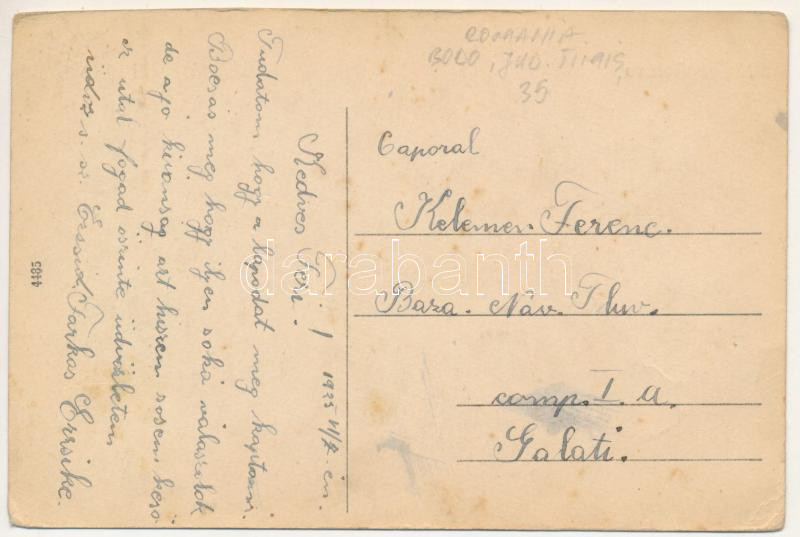 ROMANIA
JUD. TIMIS,
35
Kedves Feri! 1925 V/2-én.
Tudatom hogy a lapodat meg kaptam.
Bocsás meg hogy ilyen soká válaszolok
de a jó kivánság art hiszem sosem késő
ez utal fogad őszinte üdvözletem
Farkas Erzsike.
4185
Caporal
Kelemen Ferenc.
Baza. Nav. Fluv.
comp. I. a.
Galati.
darabanth